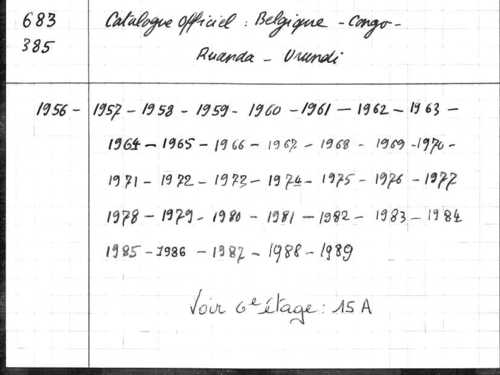 683 Catalogue officiel : Belgique - Congo -
385 Ruanda - Urundi
1956 - 1957 - 1958 - 1959 - 1960 - 1961 - 1962 - 1963 -
1964 - 1965 - 1966 - 1967 - 1968 - 1969 - 1970 -
1971 - 1972 - 1973 - 1974 - 1975 - 1976 - 1977
1978 - 1979 - 1980 - 1981 - 1982 - 1983 - 1984
1985 - 1986 - 1987 - 1988 - 1989
Voir 6e étage : 15A